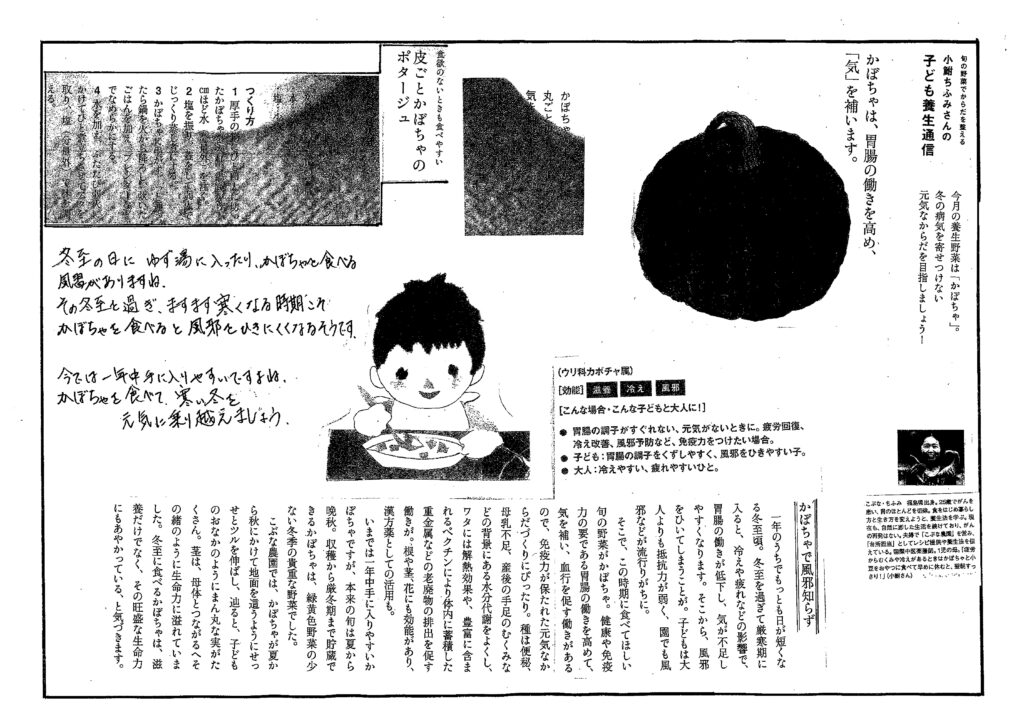 旬の野菜でからだを整える
小鮒ちふみさんの
子ども養生通信
今月の養生野菜は「かぼちゃ」。
冬の病気を寄せつけない
元気なからだを目指しましょう！
かぼちゃは、胃腸の働きを高め、
「気」を補います。
かぼちゃ
丸ごと
気
食欲のないときも食べやすい
皮ごとかぼちゃの
ポタージュ
つくり方
1 厚手の
たかぼちゃ
cmほど水
2 塩を振
じっくり
3 かぼちゃ
たら鍋を火から
ごはんを加え
でなめらかにする。
4 水を加え
かけてひと
取り、塩（分量外）で味
える。
冬至の日に ゆず湯に入ったり、かぼちゃを食べる
風習がありますね.
その冬至を過ぎ、ますます寒くなる時期こそ
かぼちゃを食べると風邪をひきにくくなるそうです.
今では一年中手に入りやすいですよね.
かぼちゃを食べて、寒い冬を
元気に乗り越えましょう.
（ウリ科カボチャ属）
［効能］ 滋養 冷え 風邪
［こんな場合・こんな子どもと大人に！］
● 胃腸の調子がすぐれない、元気がないときに。疲労回復、
冷え改善、風邪予防など、免疫力をつけたい場合。
● 子ども：胃腸の調子をくずしやすく、風邪をひきやすい子。
● 大人：冷えやすい、疲れやすいひと。
かぼちゃで風邪知らず
一年のうちでもっとも日が短くな
る冬至頃。冬至を過ぎて厳寒期に
入ると、冷えや疲れなどの影響で、
胃腸の働きが低下し、気が不足し
やすくなります。そこから、風邪
をひいてしまうことが。子どもは大
人よりも抵抗力が弱く、園でも風
邪などが流行りがちに。
そこで、この時期に食べてほしい
旬の野菜がかぼちゃ。健康や免疫
力の要である胃腸の働きを高めて、
気を補い、血行を促す働きがある
ので、免疫力が保たれた元気なか
らだづくりにぴったり。種は便秘、
母乳不足、産後の手足のむくみな
どの背景にある水分代謝をよくし、
ワタには解熱効果や、豊富に含ま
れるペクチンにより体内に蓄積した
重金属などの老廃物の排出を促す
働きが。根や茎、花にも効能があり、
漢方薬としての活用も。
いまでは一年中手に入りやすいか
ぼちゃですが、本来の旬は夏から
晩秋。収穫から厳冬期まで貯蔵で
きるかぼちゃは、緑黄色野菜の少
ない冬季の貴重な野菜でした。
こぶな農園では、かぼちゃが夏か
ら秋にかけて地面を這うようにせっ
せとツルを伸ばし、辿ると、子ども
のおなかのようにまん丸な実がた
くさん。茎は、母体とつながるへそ
の緒のように生命力に溢れていま
した。冬至に食べるかぼちゃは、滋
養だけでなく、その旺盛な生命力
にもあやかっている、と気づきます。
こぶな・ちふみ 福島県出身。25歳でがんを
患い、胃のほとんどを切除。食をはじめ暮らし
方と生き方を変えようと、養生法を学ぶ。現
在も、自然に即した生活を続けており、がん
の再発はない。夫婦で「こぶな農園」を営み、